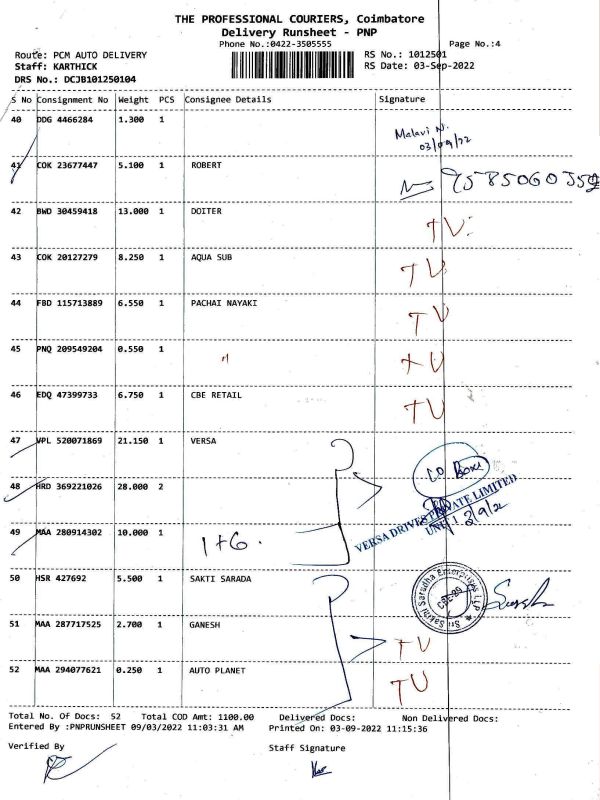 THE PROFESSIONAL COURIERS, Coimbatore
Delivery Runsheet - PNP
Phone No.:0422-3505555
Page No.:4
Route: PCM AUTO DELIVERY
RS No.: 1012501
Staff: KARTHICK
RS Date: 03-Sep-2022
DRS No.: DCJB101250104
S No Consignment No Weight PCS Consignee Details Signature
40 DDG 4466284 1.300 1
Malavi N.
03/09/22
41 COK 23677447 5.100 1 ROBERT
9585060359
42 BWD 30459418 13.000 1 DOITER TV
43 COK 20127279 8.250 1 AQUA SUB TV
44 FBD 115713889 6.550 1 PACHAI NAYAKI TV
45 PNQ 209549204 0.550 1 " TV
46 EDQ 47399733 6.750 1 CBE RETAIL TV
47 VPL 520071869 21.150 1 VERSA
48 HRD 369221026 28.000 2
Box
VERSA DRIVES PRIVATE LIMITED
UNIT 1 3/9/22
49 MAA 280914302 10.000 1 1+6.
50 HSR 427692 5.500 1 SAKTI SARADA
Sri Sakthi Saradha Enterprises LLP
51 MAA 287717525 2.700 1 GANESH TV
52 MAA 294077621 0.250 1 AUTO PLANET TV
Total No. Of Docs: 52 Total COD Amt: 1100.00 Delivered Docs: Non Delivered Docs:
Entered By :PNPRUNSHEET 09/03/2022 11:03:31 AM Printed On: 03-09-2022 11:15:36
Verified By Staff Signature